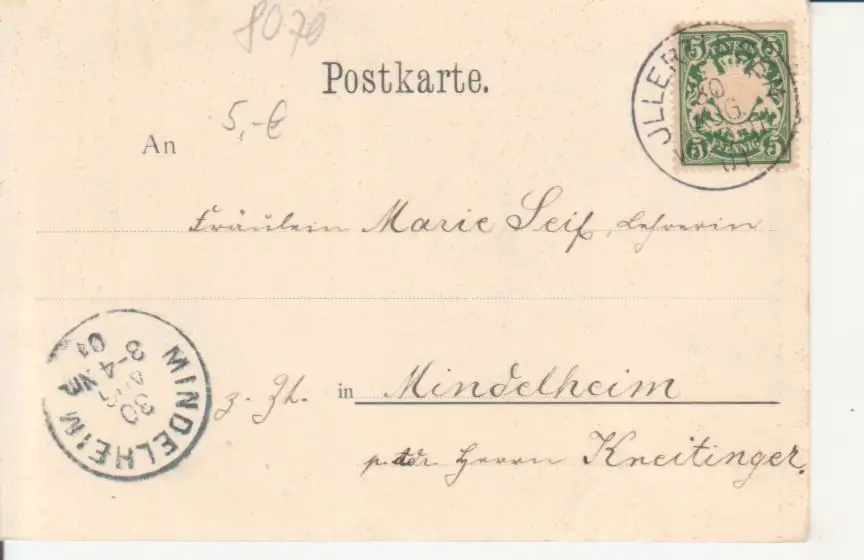 8070
Postkarte.
5,-€
An
5 BAYERN 5
5 PFENNIG 5
30
AUG.
01
Fräulein Marie Seif, Lehrerin
MINDELHEIM
30
AUG
3-4 NM
01
z. Zt. in Mindelheim
p. Adr. Herrn Kneitinger.